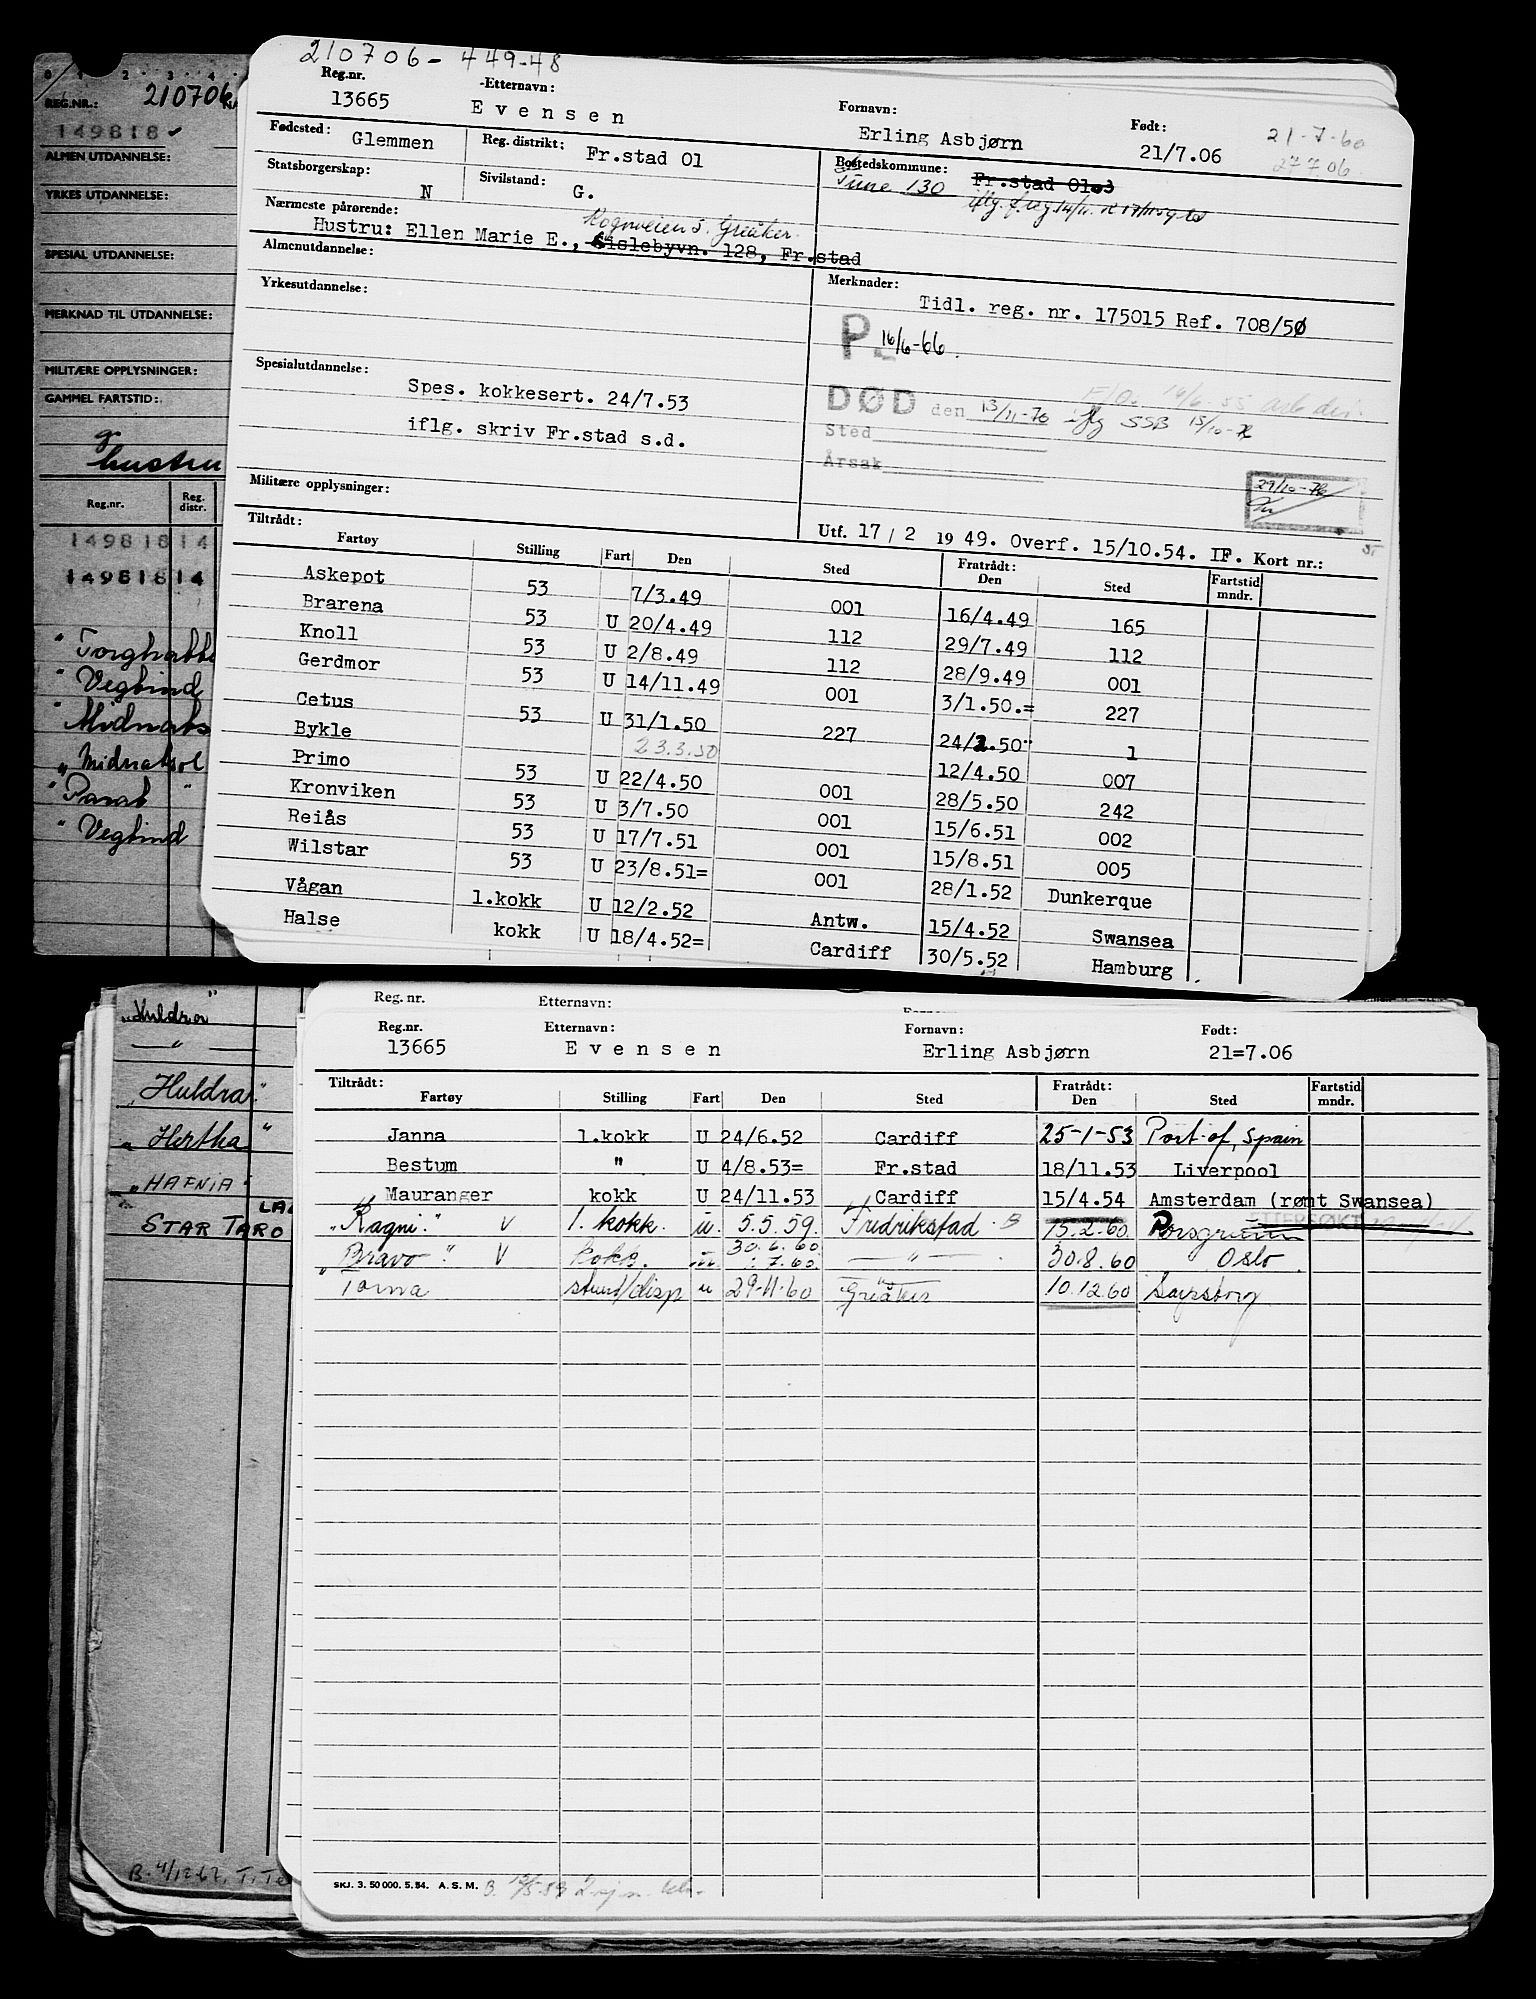 210706 - 449-48
Reg.nr. Etternavn: Fornavn: Født:
13665 Evensen Erling Asbjørn 21/7.06 21-7-60
27706
Fødested: Glemmen Reg. distrikt: Fr.stad 01 Bostedskommune: Tune 130 Fr.stad 01
Statsborgerskap: N Sivilstand: G.
Nærmeste pårørende: Rognveien 5. Greåker.
Hustru: Ellen Marie E., Gislebyvn. 128, Fr.stad
Almenutdannelse:
Yrkesutdannelse:
Merknader:
Tidl. reg. nr. 175015 Ref. 708/50
P 16/6-66.
Spesialutdannelse:
Spes. kokkesert. 24/7.53
iflg. skriv Fr.stad s.d.
DØD den 13/11-76 iflg SSB 15/10-76
Sted
Årsak
29/10-76
Militære opplysninger:
Utf. 17/2 1949. Overf. 15/10.54. IF. Kort nr.:
Tiltrådt: Fratrådt:
Fartøy Stilling Fart Den Sted Den Sted Fartstid mndr.
Askepot 53 7/3.49 001 16/4.49 165
Brarena 53 U 20/4.49 112 29/7.49 112
Knoll 53 U 2/8.49 112 28/9.49 001
Gerdmor 53 U 14/11.49 001 3/1.50.= 227
Cetus 53 U 31/1.50 227 24/2.50 1
Bykle 23.3.50 12/4.50 007
Primo 53 U 22/4.50 001 28/5.50 242
Kronviken 53 U 3/7.50 001 15/6.51 002
Reiås 53 U 17/7.51 001 15/8.51 005
Wilstar 53 U 23/8.51= 001 28/1.52 Dunkerque
Vågan 1.kokk U 12/2.52 Antw. 15/4.52 Swansea
Halse kokk U 18/4.52= Cardiff 30/5.52 Hamburg
0 1 2 3 4
REG.NR.: 210706 NA
149818
ALMEN UTDANNELSE:
YRKES UTDANNELSE:
SPESIAL UTDANNELSE:
MERKNAD TIL UTDANNELSE:
MILITÆRE OPPLYSNINGER:
GAMMEL FARTSTID:
g
hustru
Reg.nr. Reg. distr.
149818 14
149818 14
" Vegtind
„ Midnatsol
" Vegtind
Reg. nr. Etternavn:
Reg.nr. Etternavn: Fornavn: Født:
13665 Evensen Erling Asbjørn 21=7.06
Tiltrådt: Fratrådt:
Fartøy Stilling Fart Den Sted Den Sted Fartstid mndr.
Janna 1.kokk U 24/6.52 Cardiff 25-1-53 Port of, Spain
Bestum " U 4/8.53= Fr.stad 18/11.53 Liverpool
Mauranger kokk U 24/11.53 Cardiff 15/4.54 Amsterdam (rømt Swansea)
"Ragni." V 1. kokk. u. 5.5.59. Fredrikstad - B 15.2.60 Porsgrunn
"Bravo" V kokk. u. 30.6.60 1.7.60. — " — 30.8.60 Oslo
Torna stuert/disp u 29-11-60 Greåker 10.12.60 Sarpsborg
SKJ. 3. 50 000. 5. 54. A. S. M.
„Huldra"
— " —
„Huldra"
„Hertha"
„HAFNIA"
STAR TARO